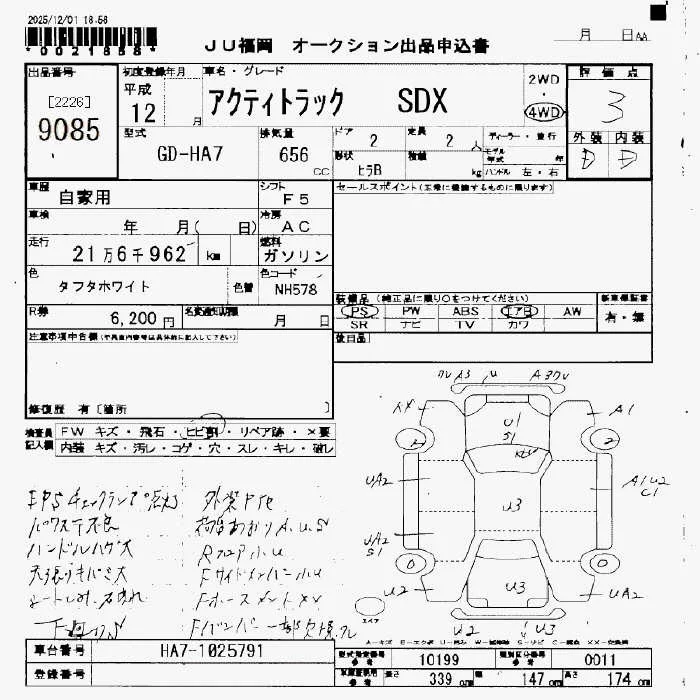 2025/12/01 18:58
*0021858*
JU福岡 オークション出品申込書
月 日AA
出品番号
[2226]
9085
初度登録年月
平成
12 月
車名・グレード
アクティトラック SDX
2WD
・
4WD
評価点
3
外装 内装
D D
型式
GD-HA7
排気量
656
CC
ドア
2
定員
2 人
形状
ヒラB
積載
kg
ディーラー・並行
モデル年式 年
ハンドル 左・右
車歴
自家用
シフト
F5
セールスポイント(正常に機能するものに限ります)
車検
年 月( 日)
冷房
AC
走行
21万6千962 km
燃料
ガソリン
色
タフタホワイト
色替
色コード
NH578
R券
6,200円
名変通知期限
月 日
装備品 (純正品に限り○をつけてください)
PS PW ABS エアB AW
SR ナビ TV カワ
新車保証書
有・無
後日品
注意事項申告欄
修復歴 有〔箇所 〕
検査員記入欄
FW キズ・飛石・ヒビ割・リペア跡・×要
内装 キズ・汚レ・コゲ・穴・スレ・キレ・破レ
EPSチェックランプ点灯
パワステ不良
ハンドルハゲ大
天張りキバミ大
外装P化
荷台あおりA.U.S
RフロアP小U
Fサイドメンバー小U
A3
U
A1
U1
S1
2
2
UA2
A1U2
C1
U3
UA2
S1
0
0
U2
U3
UA2
U2
U3
エイア
車台番号
HA7-1025791
登録番号
型式指定番号
参考
10199
類別区分番号
参考
0011
長さ
339 cm
幅
147 cm
高さ
174 cm